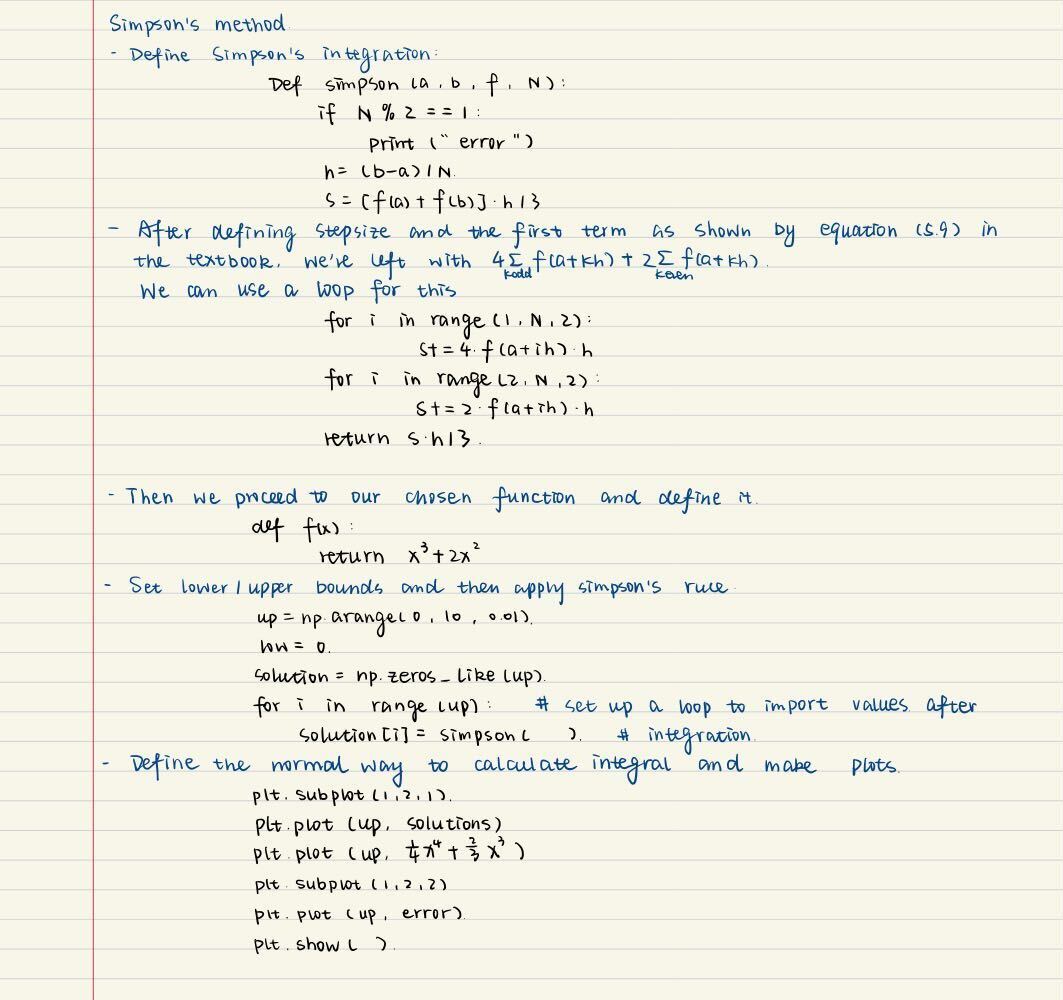 Simpson's method.
- Define Simpson's integration:
Def simpson (a, b, f, N):
if N % 2 == 1:
print ("error")
h = (b-a)/N.
S = [f(a) + f(b)] · h/3
- After defining stepsize and the first term as shown by equation (5.9) in
the textbook, we're left with 4 Σ f(a+kh) + 2 Σ f(a+kh).
k odd k even
We can use a loop for this
for i in range (1, N, 2):
S += 4 · f(a+ih) · h
for i in range (2, N, 2):
S += 2 · f(a+ih) · h
return S·h/3.
- Then we proceed to our chosen function and define it.
def f(x):
return x³ + 2x²
- Set lower/upper bounds and then apply simpson's rule.
up = np.arange(0, 10, 0.01).
low = 0.
solution = np.zeros_like (up).
for i in range (up): # set up a loop to import values after
solution [i] = simpson ( ). # integration.
- Define the normal way to calculate integral and make plots.
plt.subplot (1,2,1).
plt.plot (up, solutions)
plt.plot (up, 1/4 x⁴ + 2/3 x³)
plt.subplot (1,2,2)
plt.plot (up, error).
plt.show ( ).